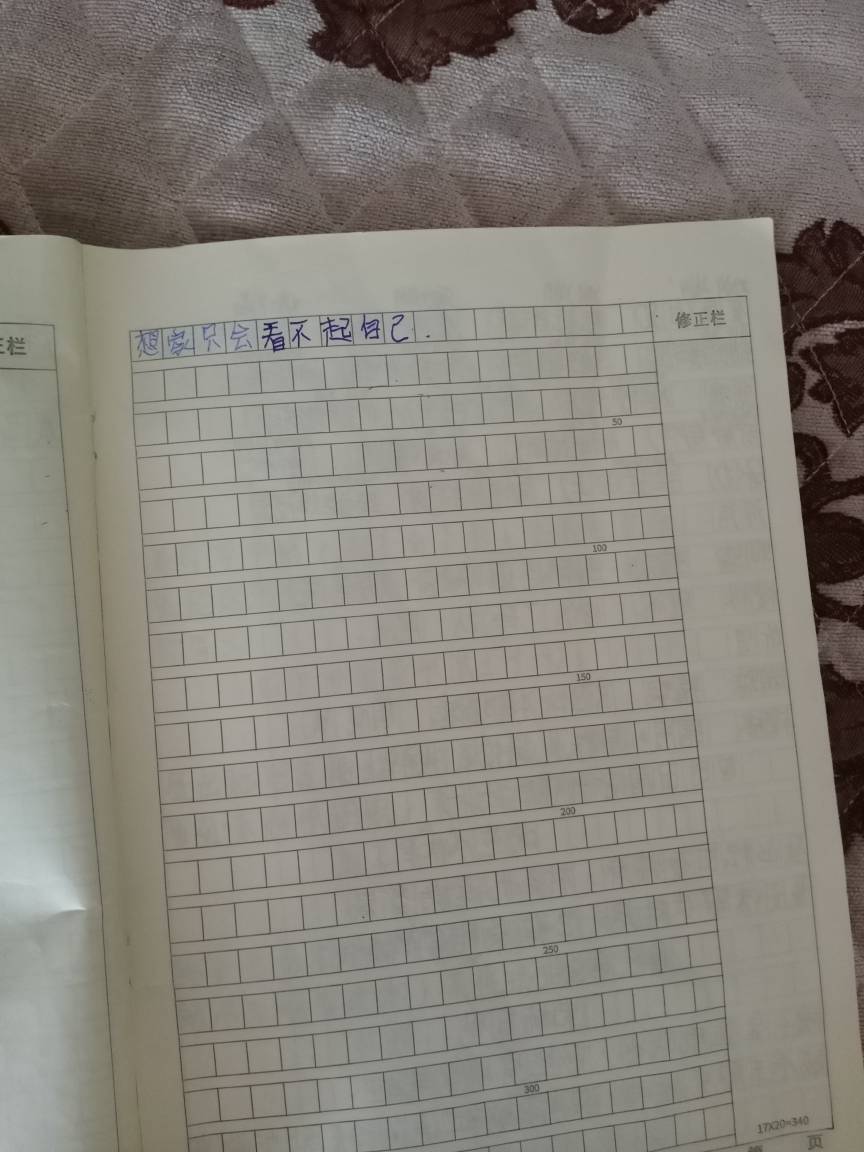 正栏
修正栏
想家只会看不起自己.
50
100
150
200
250
300
17X20=340
第 页